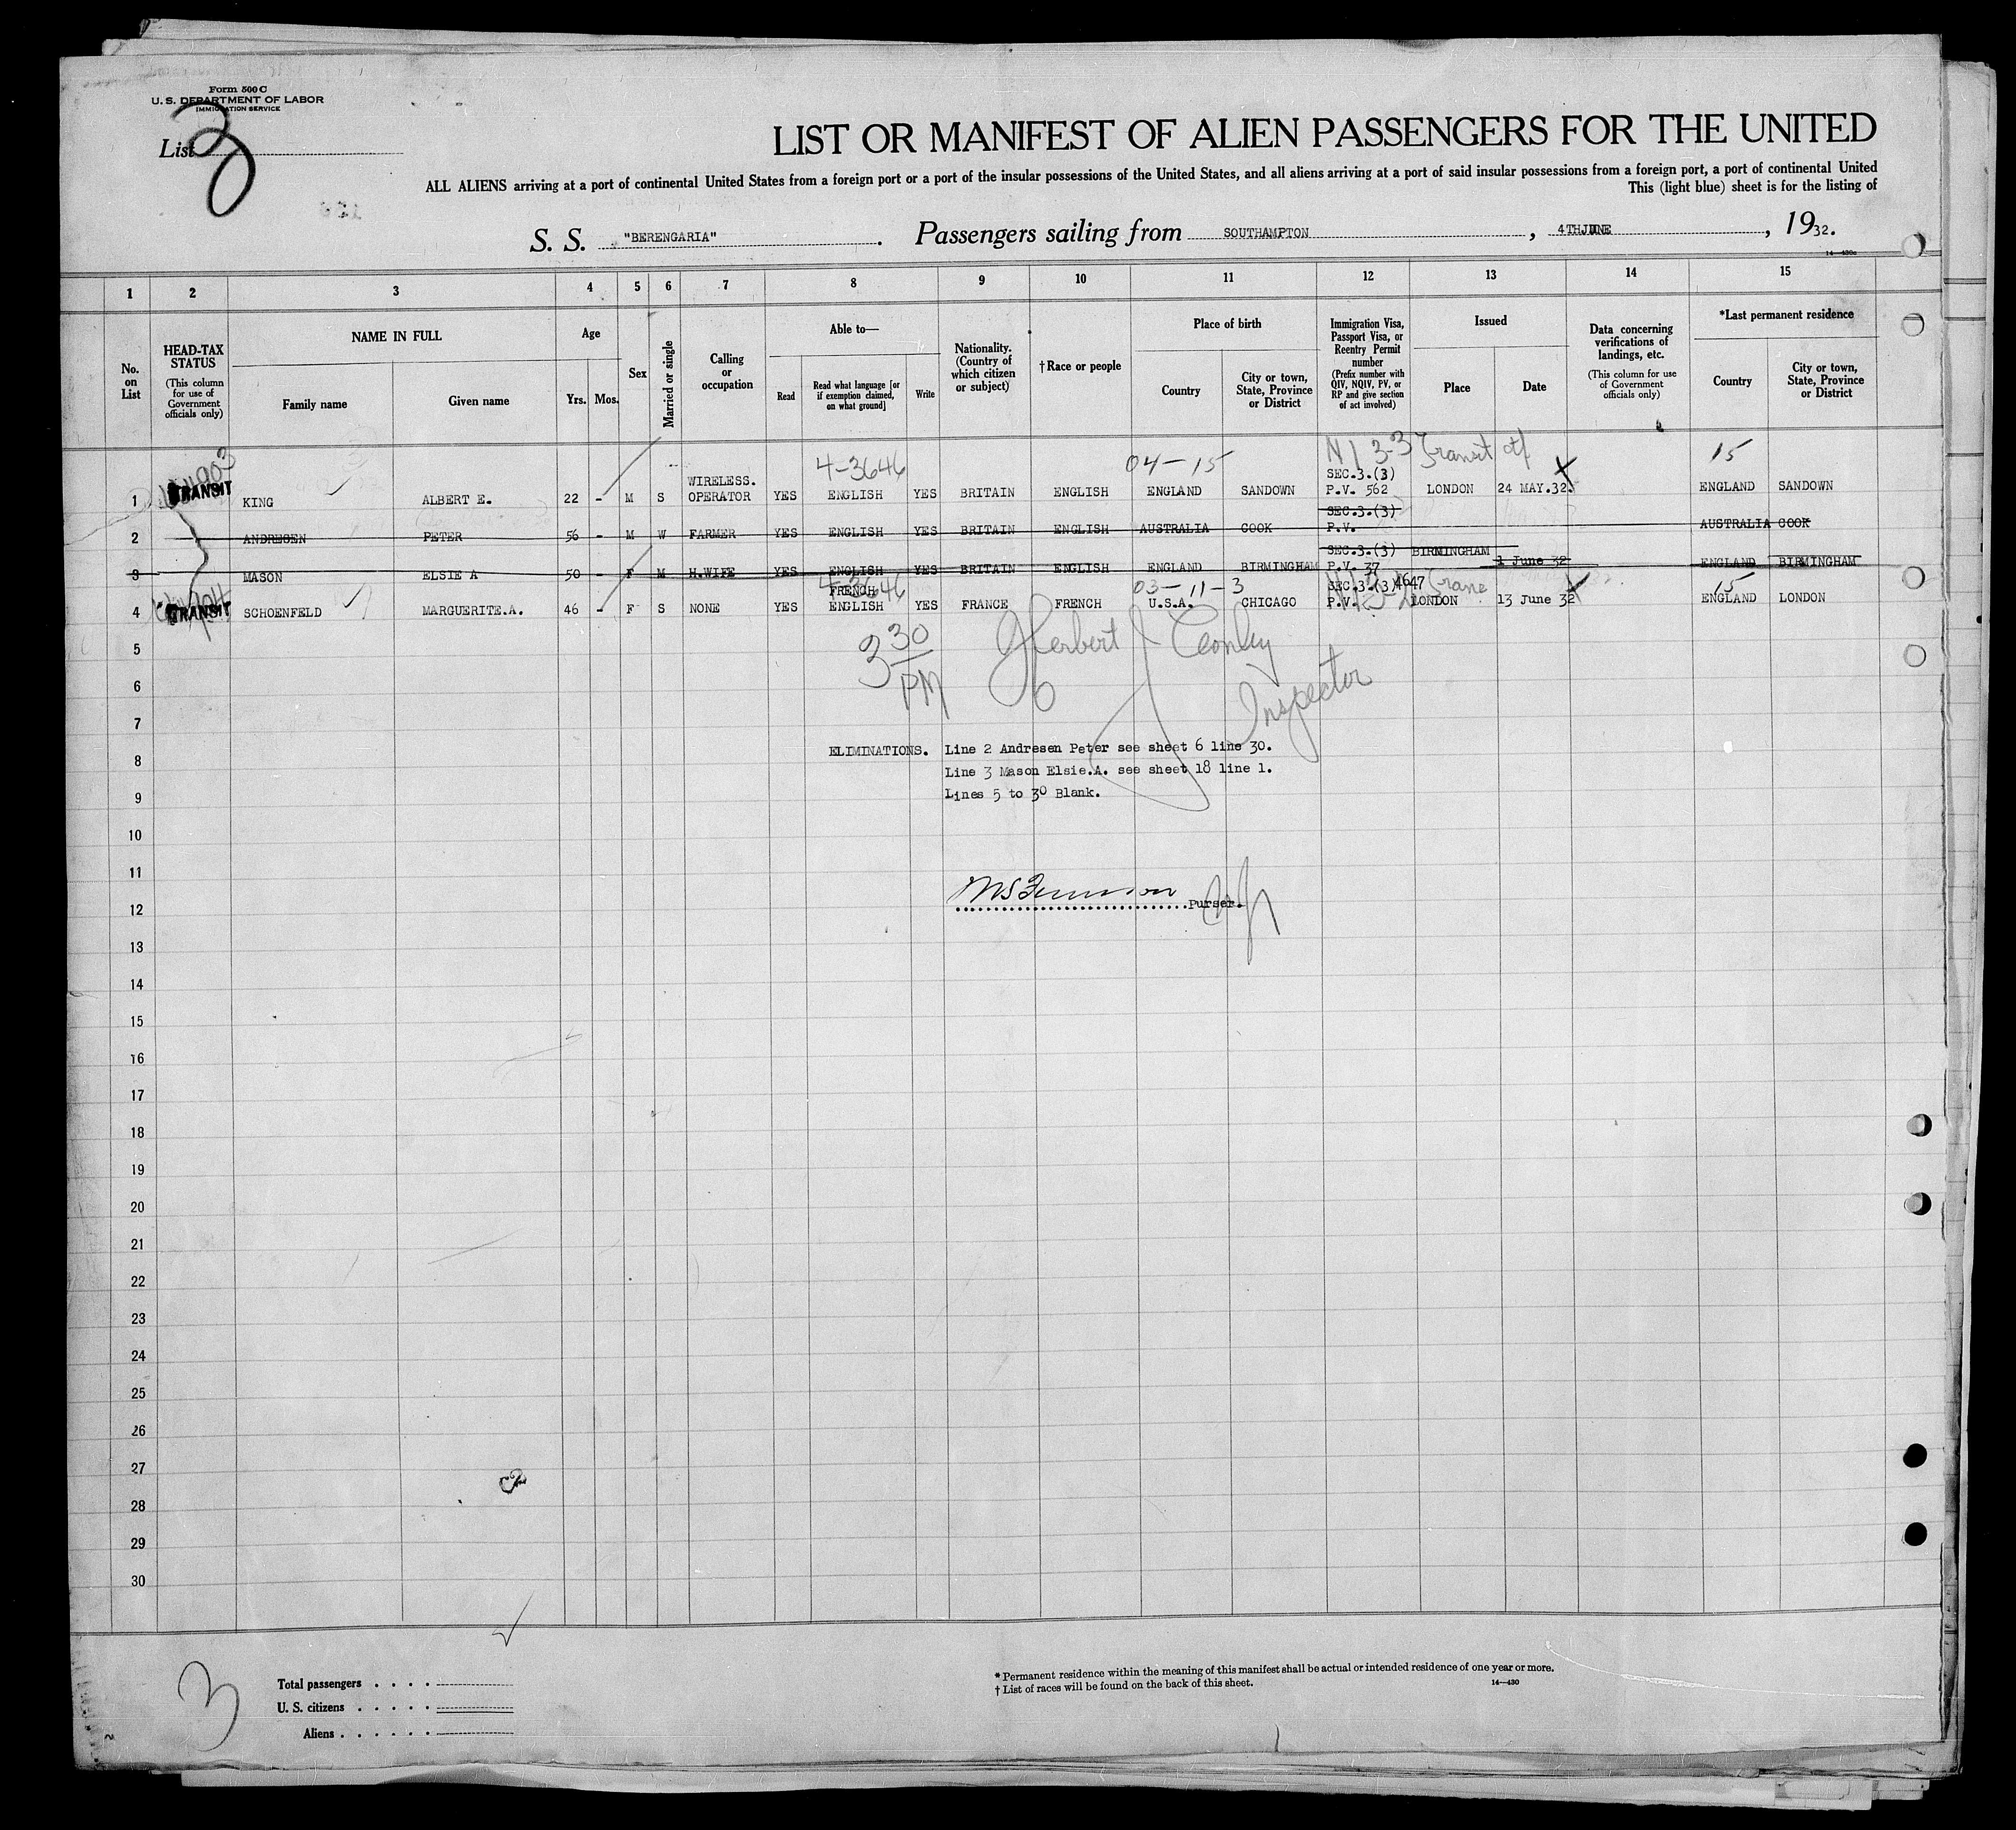 Form 500 C
U. S. DEPARTMENT OF LABOR
IMMIGRATION SERVICE
List 3
LIST OR MANIFEST OF ALIEN PASSENGERS FOR THE UNITED
ALL ALIENS arriving at a port of continental United States from a foreign port or a port of the insular possessions of the United States, and all aliens arriving at a port of said insular possessions from a foreign port, a port of continental United
This (light blue) sheet is for the listing of
S. S. "BERENGARIA". Passengers sailing from SOUTHAMPTON, 4TH JUNE, 1932.
14—430c
1 2 3 4 5 6 7 8 9 10 11 12 13 14 15
No. on List
HEAD-TAX STATUS (This column for use of Government officials only)
NAME IN FULL
Family name
Given name
Age
Yrs. Mos.
Sex
Married or single
Calling or occupation
Able to—
Read
Read what language [or if exemption claimed, on what ground]
Write
Nationality. (Country of which citizen or subject)
† Race or people
Place of birth
Country
City or town, State, Province or District
Immigration Visa, Passport Visa, or Reentry Permit number (Prefix number with QIV, NQIV, PV, or RP and give section of act involved)
Issued
Place
Date
Data concerning verifications of landings, etc. (This column for use of Government officials only)
*Last permanent residence
Country
City or town, State, Province or District
4-3646 04-15 N 1 3-3 Transit 15
TRANSIT WIRELESS. SEC.3.(3)
1 KING ALBERT E. 22 - M S OPERATOR YES ENGLISH YES BRITAIN ENGLISH ENGLAND SANDOWN P.V. 562 LONDON 24 MAY.32. ENGLAND SANDOWN
SEC.3.(3)
2 ANDRESEN PETER 56 - M W FARMER YES ENGLISH YES BRITAIN ENGLISH AUSTRALIA COOK P.V. AUSTRALIA COOK
SEC.3.(3) BIRMINGHAM
3 MASON ELSIE A 50 - F M H.WIFE YES ENGLISH YES BRITAIN ENGLISH ENGLAND BIRMINGHAM P.V. 37 1 June 32 ENGLAND BIRMINGHAM
4-3646 03-11-3 15
TRANSIT FRENCH SEC.3.(3) 4647
4 SCHOENFELD MARGUERITE.A. 46 - F S NONE YES ENGLISH YES FRANCE FRENCH U.S.A. CHICAGO P.V. LONDON 13 June 32 ENGLAND LONDON
5
3 30 PM Herbert J Conley
6
Inspector
7
8
ELIMINATIONS. Line 2 Andresen Peter see sheet 6 line 30.
Line 3 Mason Elsie.A. see sheet 18 line 1.
9
Lines 5 to 30 Blank.
10
11
12
Purser.
13
14
15
16
17
18
19
20
21
22
23
24
25
26
27
28
29
30
3
Total passengers
U. S. citizens
Aliens
* Permanent residence within the meaning of this manifest shall be actual or intended residence of one year or more.
† List of races will be found on the back of this sheet.
14—430